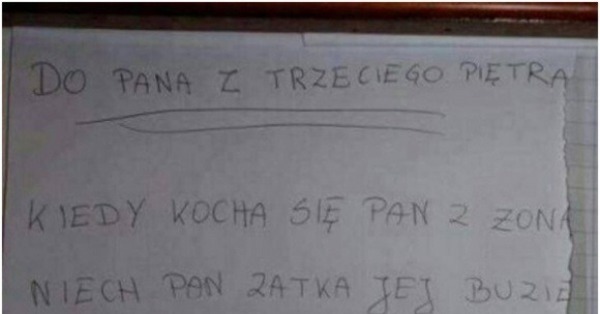 DO PANA Z TRZECIEGO PIĘTRA
KIEDY KOCHA SIĘ PAN Z ZONĄ
NIECH PAN ZATKA JEJ BUZIĘ